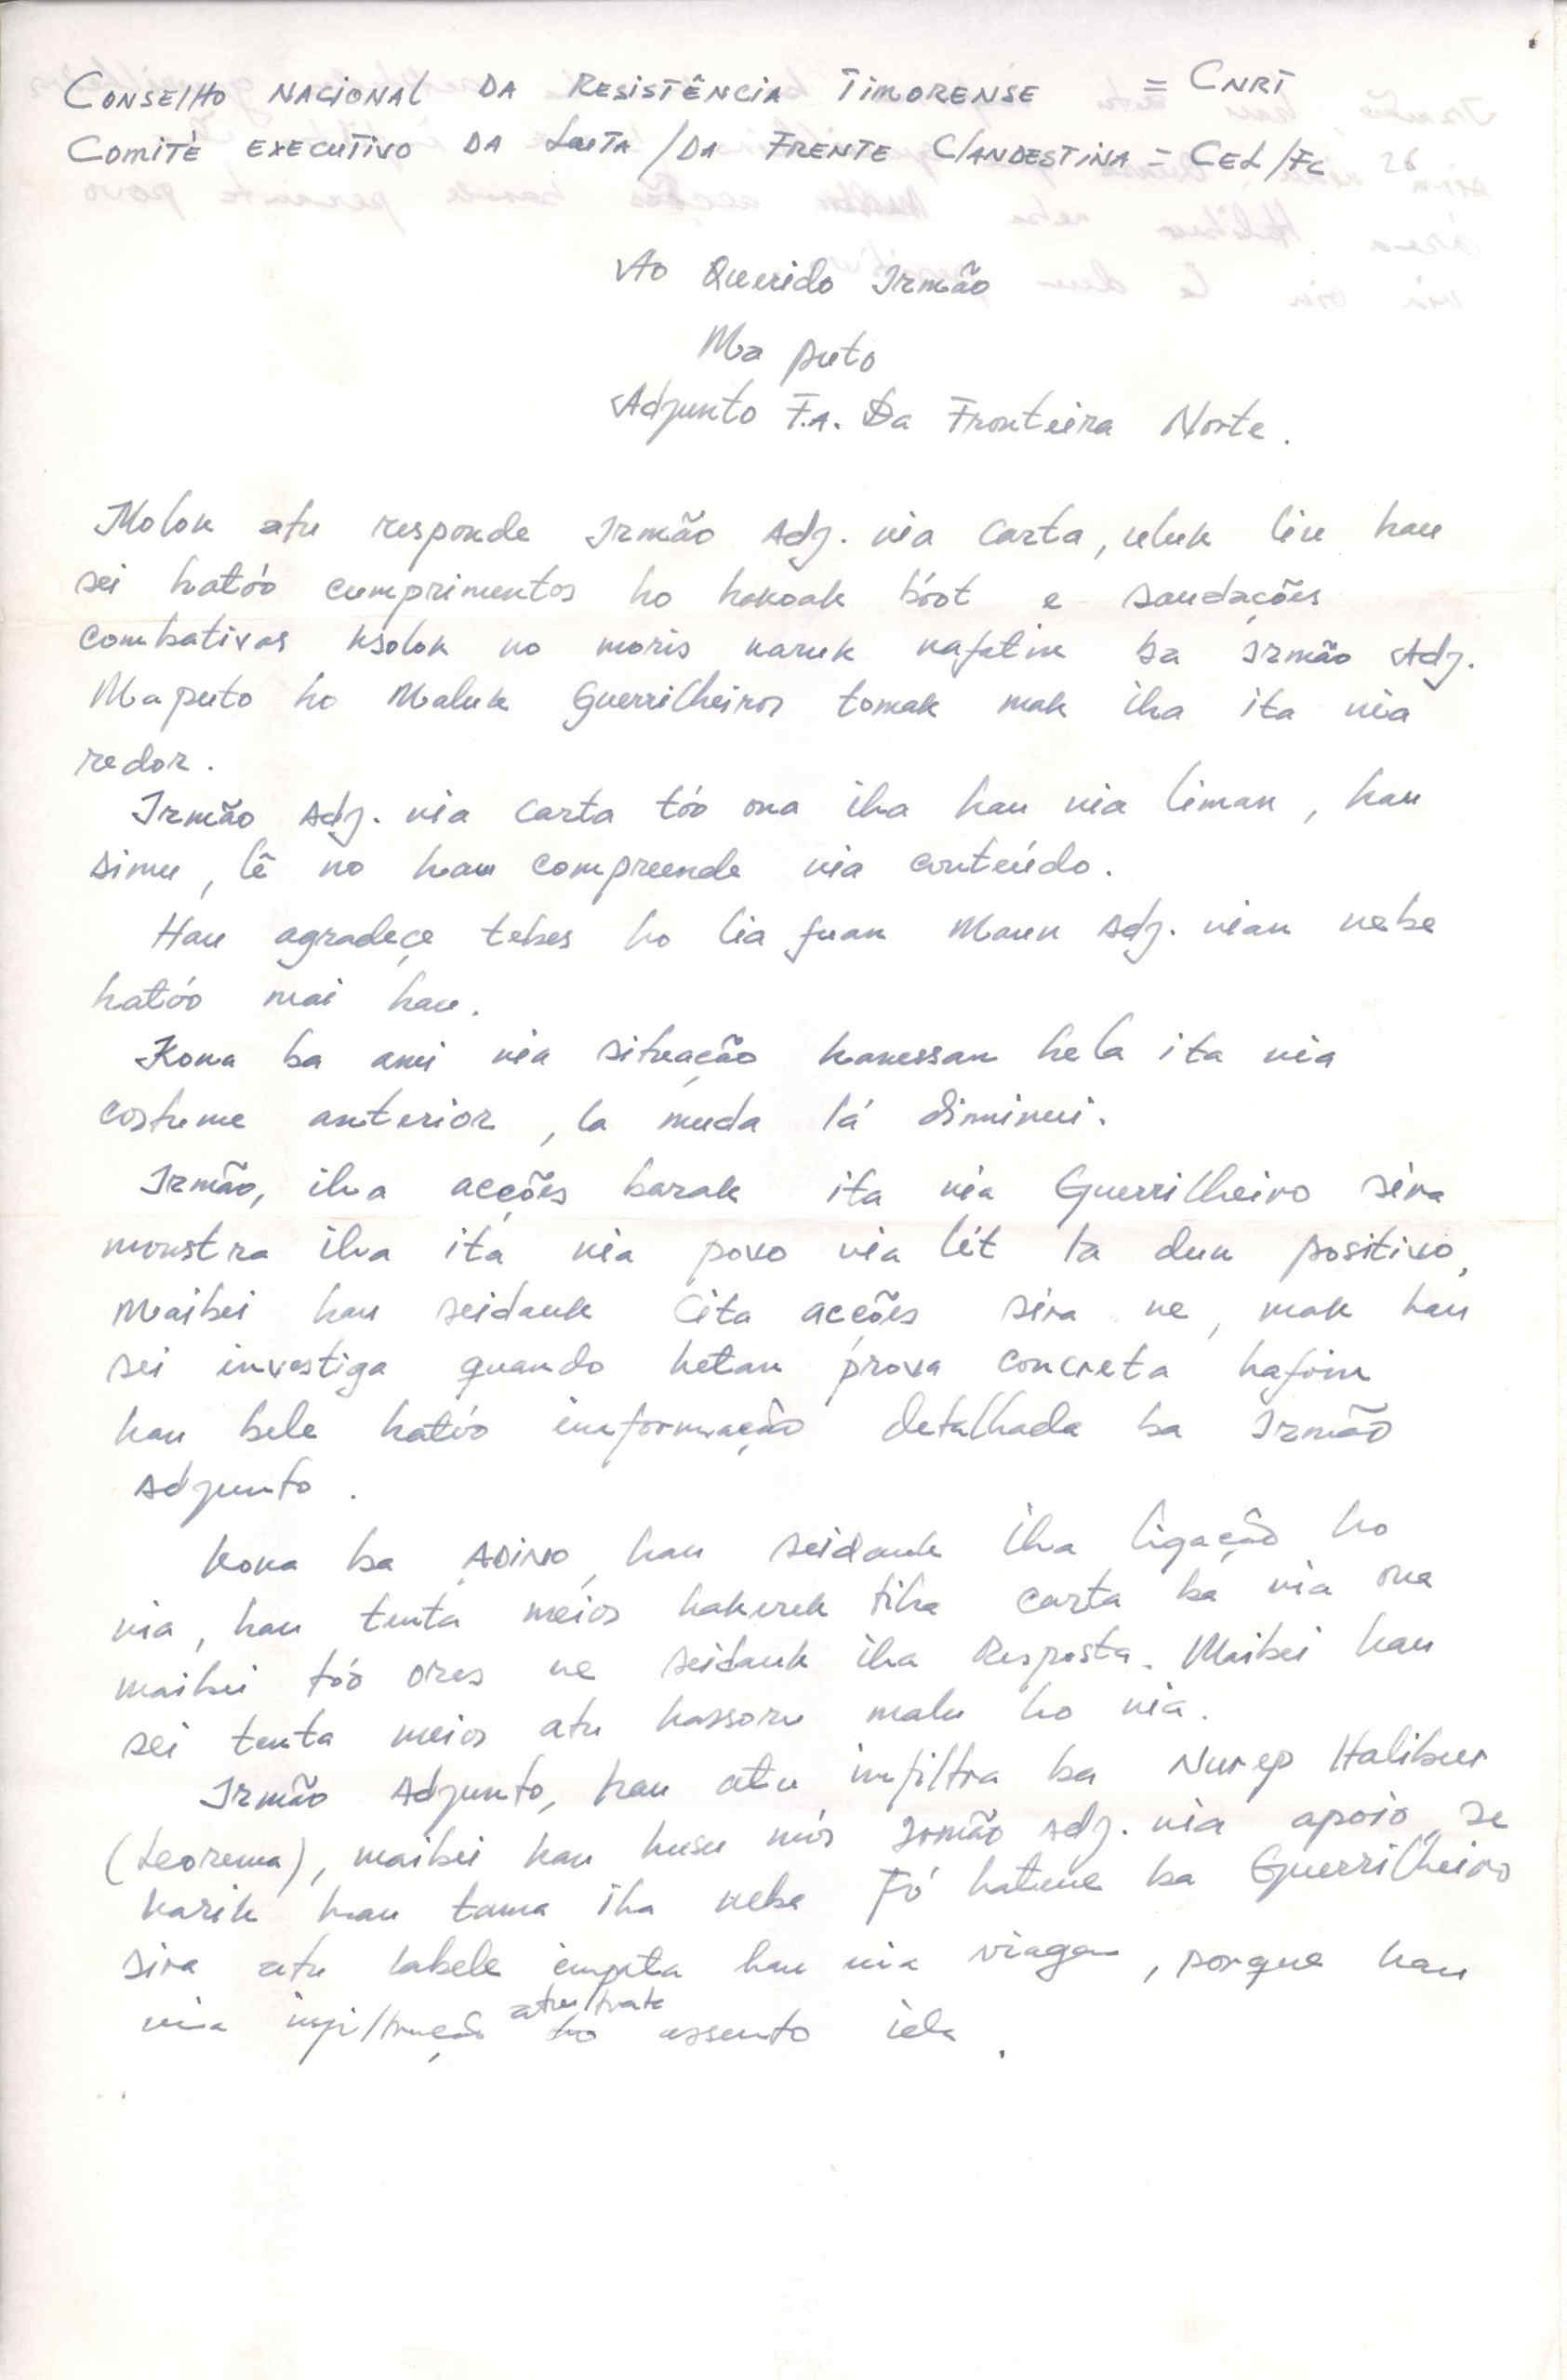 CONSELHO NACIONAL DA RESISTÊNCIA TIMORENSE = CNRT
COMITÈ EXECUTIVO DA LUTA / DA FRENTE CLANDESTINA = CEL/FC
Ao Querido Irmão
Ma puto
Adjunto F.A. Da Fronteira Norte.
Molok atu responde Irmão Adj. nia carta, uluk liu hau
sei hatóo cumprimentos ho hakoak bóot e saudações
combativas ksolok no moris naruk nafatin ba Irmão Adj.
Maputo ho Maluk Guerrilheiros tomak mak iha ita nia
redor.
Irmão Adj. nia carta tóo ona iha hau nia liman, hau
simu, lê no hau compreende nia conteúdo.
Hau agradeçe tebes ho lia fuan Maun Adj. nian nebe
hatóo mai hau.
Kona ba ami nia situação hanessan hela ita nia
costume anterior, la muda lá diminui.
Irmão, iha acções barak ita nia Guerrilheiro sira
monstra iha ita nia povo nia lét la dun positivo,
Maibei hau seidauk cita acções sira ne, mak hau
sei investiga quando hetan prova concreta hafoin
hau bele hatóo informação detalhada ba Irmão
Adjunto.
Kona ba hau seidauk iha ligação ho
nia, hau tenta meios hakerek tiha carta ba nia ona
maibei tóo oras ne seidauk iha Resposta. Maibei hau
sei tenta meios atu hassoru malu ho nia.
Irmão Adjunto, hau atu infiltra ba Nurep Halibur
(Leorema), maibei hau husu mós Irmão Adj. nia apoio, se
karik hau tama iha neba fó hatene ba Guerrilheiro
sira atu labele hau nia viagem, porque hau
nia infiltração atu trata ho assunto ida.